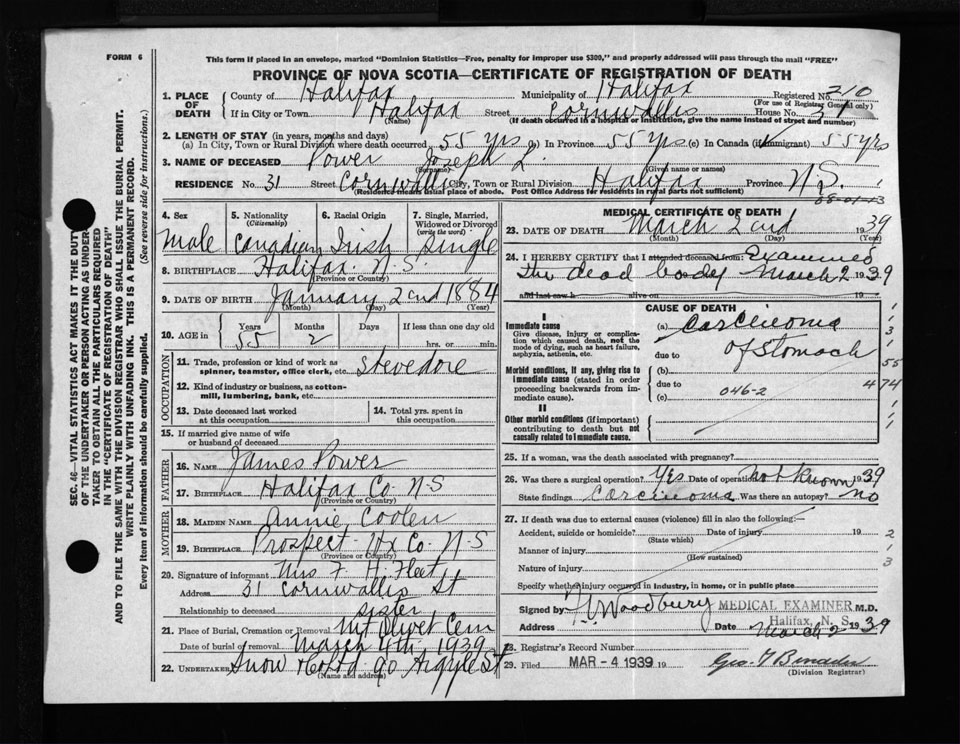 FORM 6
This form if placed in an envelope, marked "Dominion Statistics—Free, penalty for improper use $300," and properly addressed will pass through the mail "FREE"
PROVINCE OF NOVA SCOTIA—CERTIFICATE OF REGISTRATION OF DEATH
SEC. 46—VITAL STATISTICS ACT MAKES IT THE DUTY
OF THE UNDERTAKER OR PERSON ACTING AS UNDER-
TAKER TO OBTAIN ALL THE PARTICULARS REQUIRED
IN THE "CERTIFICATE OF REGISTRATION OF DEATH"
AND TO FILE THE SAME WITH THE DIVISION REGISTRAR WHO SHALL ISSUE THE BURIAL PERMIT.
WRITE PLAINLY WITH UNFADING INK. THIS IS A PERMANENT RECORD.
Every item of information should be carefully supplied. (See reverse side for instructions.)
1. PLACE OF DEATH
County of Halifax Municipality of Halifax Registered No. 210
(For use of Registrar General only)
If in City or Town Halifax Street Cornwallis House No. 31
(Name) (If death occurred in a hospital or institution, give the name instead of street and number)
2. LENGTH OF STAY (in years, months and days)
(a) In City, Town or Rural Division where death occurred 55 yrs (b) In Province 55 yrs (c) In Canada (if immigrant) 55 yrs
3. NAME OF DECEASED Power Joseph L.
(Surname) (Given name or names)
RESIDENCE No. 31 Street Cornwallis City, Town or Rural Division Halifax Province N.S.
(Residence means usual place of abode. Post Office Address for residents in rural parts not sufficient)
4. Sex Male
5. Nationality (Citizenship) Canadian
6. Racial Origin Irish
7. Single, Married, Widowed or Divorced (write the word) Single
8. BIRTHPLACE Halifax. N.S.
(Province or Country)
9. DATE OF BIRTH January 2nd 1884
(Month) (Day) (Year)
10. AGE in Years 55 Months 2 Days If less than one day
hrs. or min.
OCCUPATION
11. Trade, profession or kind of work as
spinner, teamster, office clerk, etc. Stevedore
12. Kind of industry or business, as cotton-
mill, lumbering, bank, etc.
13. Date deceased last worked
at this occupation
14. Total yrs. spent in
this occupation
15. If married give name of wife
or husband of deceased
FATHER
16. NAME James Power
17. BIRTHPLACE Halifax Co. N-S
(Province or Country)
MOTHER
18. MAIDEN NAME Annie Coolen
19. BIRTHPLACE Prospect-Hx Co. N-S
(Province or Country)
20. Signature of informant Mrs F. H. Fleet
Address 31 Cornwallis St
Relationship to deceased sister
21. Place of Burial, Cremation or Removal Mt Olivet Cem
Date of burial or removal March 4th 1939
22. UNDERTAKER Snow & Co Ltd 90 Argyle St
(Name and address)
MEDICAL CERTIFICATE OF DEATH
23. DATE OF DEATH March 2nd 1939
(Month) (Day) (Year)
24. I HEREBY CERTIFY that I attended deceased from: Examined
the dead body March 2 1939
and last saw h alive on 19
CAUSE OF DEATH
I
Immediate cause
Give disease, injury or complica-
tion which caused death, not the
mode of dying, such as heart failure,
asphyxia, asthenia, etc.
(a) Carcinoma
due to of Stomach
Morbid conditions, if any, giving rise to
immediate cause (stated in order
proceeding backwards from im-
mediate cause).
(b)
due to 046-2
(c)
II
Other morbid conditions (if important)
contributing to death but not
causally related to immediate cause.
1
1
3
1
55
474
1
1
1
25. If a woman, was the death associated with pregnancy?
26. Was there a surgical operation? Yes Date of operation not known 1939
State findings Carcinoma Was there an autopsy? no
27. If death was due to external causes (violence) fill in also the following:—
Accident, suicide or homicide? Date of injury 19
(State which)
Manner of injury
(How sustained)
Nature of injury
Specify whether injury occurred in industry, in home, or in public place
2
1
3
Signed by Woodbury MEDICAL EXAMINER M.D.
Address Halifax, N. S.
Date March 2 1939
28. Registrar's Record Number
29. Filed MAR - 4 1939
(Division Registrar)